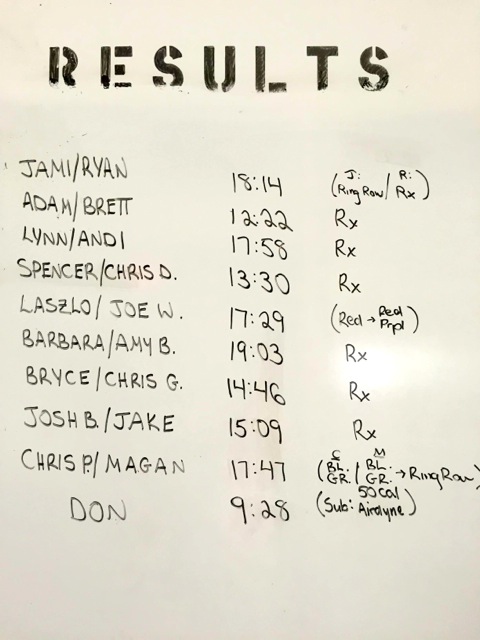 RESULTS
JAMI/RYAN 18:14 (J: Ring Row/ R: Rx)
ADAM/BRETT 12:22 Rx
LYNN/ANDI 17:58 Rx
SPENCER/CHRIS D. 13:30 Rx
LASZLO/JOE W. 17:29 (Red → Red Prpl)
BARBARA/AMY B. 19:03 Rx
BRYCE/CHRIS G. 14:46 Rx
JOSH B./JAKE 15:09 Rx
CHRIS P./MAGAN 17:47 (C BL. GR. / M BL. GR. → Ring Row)
DON 9:28 (Sub: 50 Cal Airdyne)